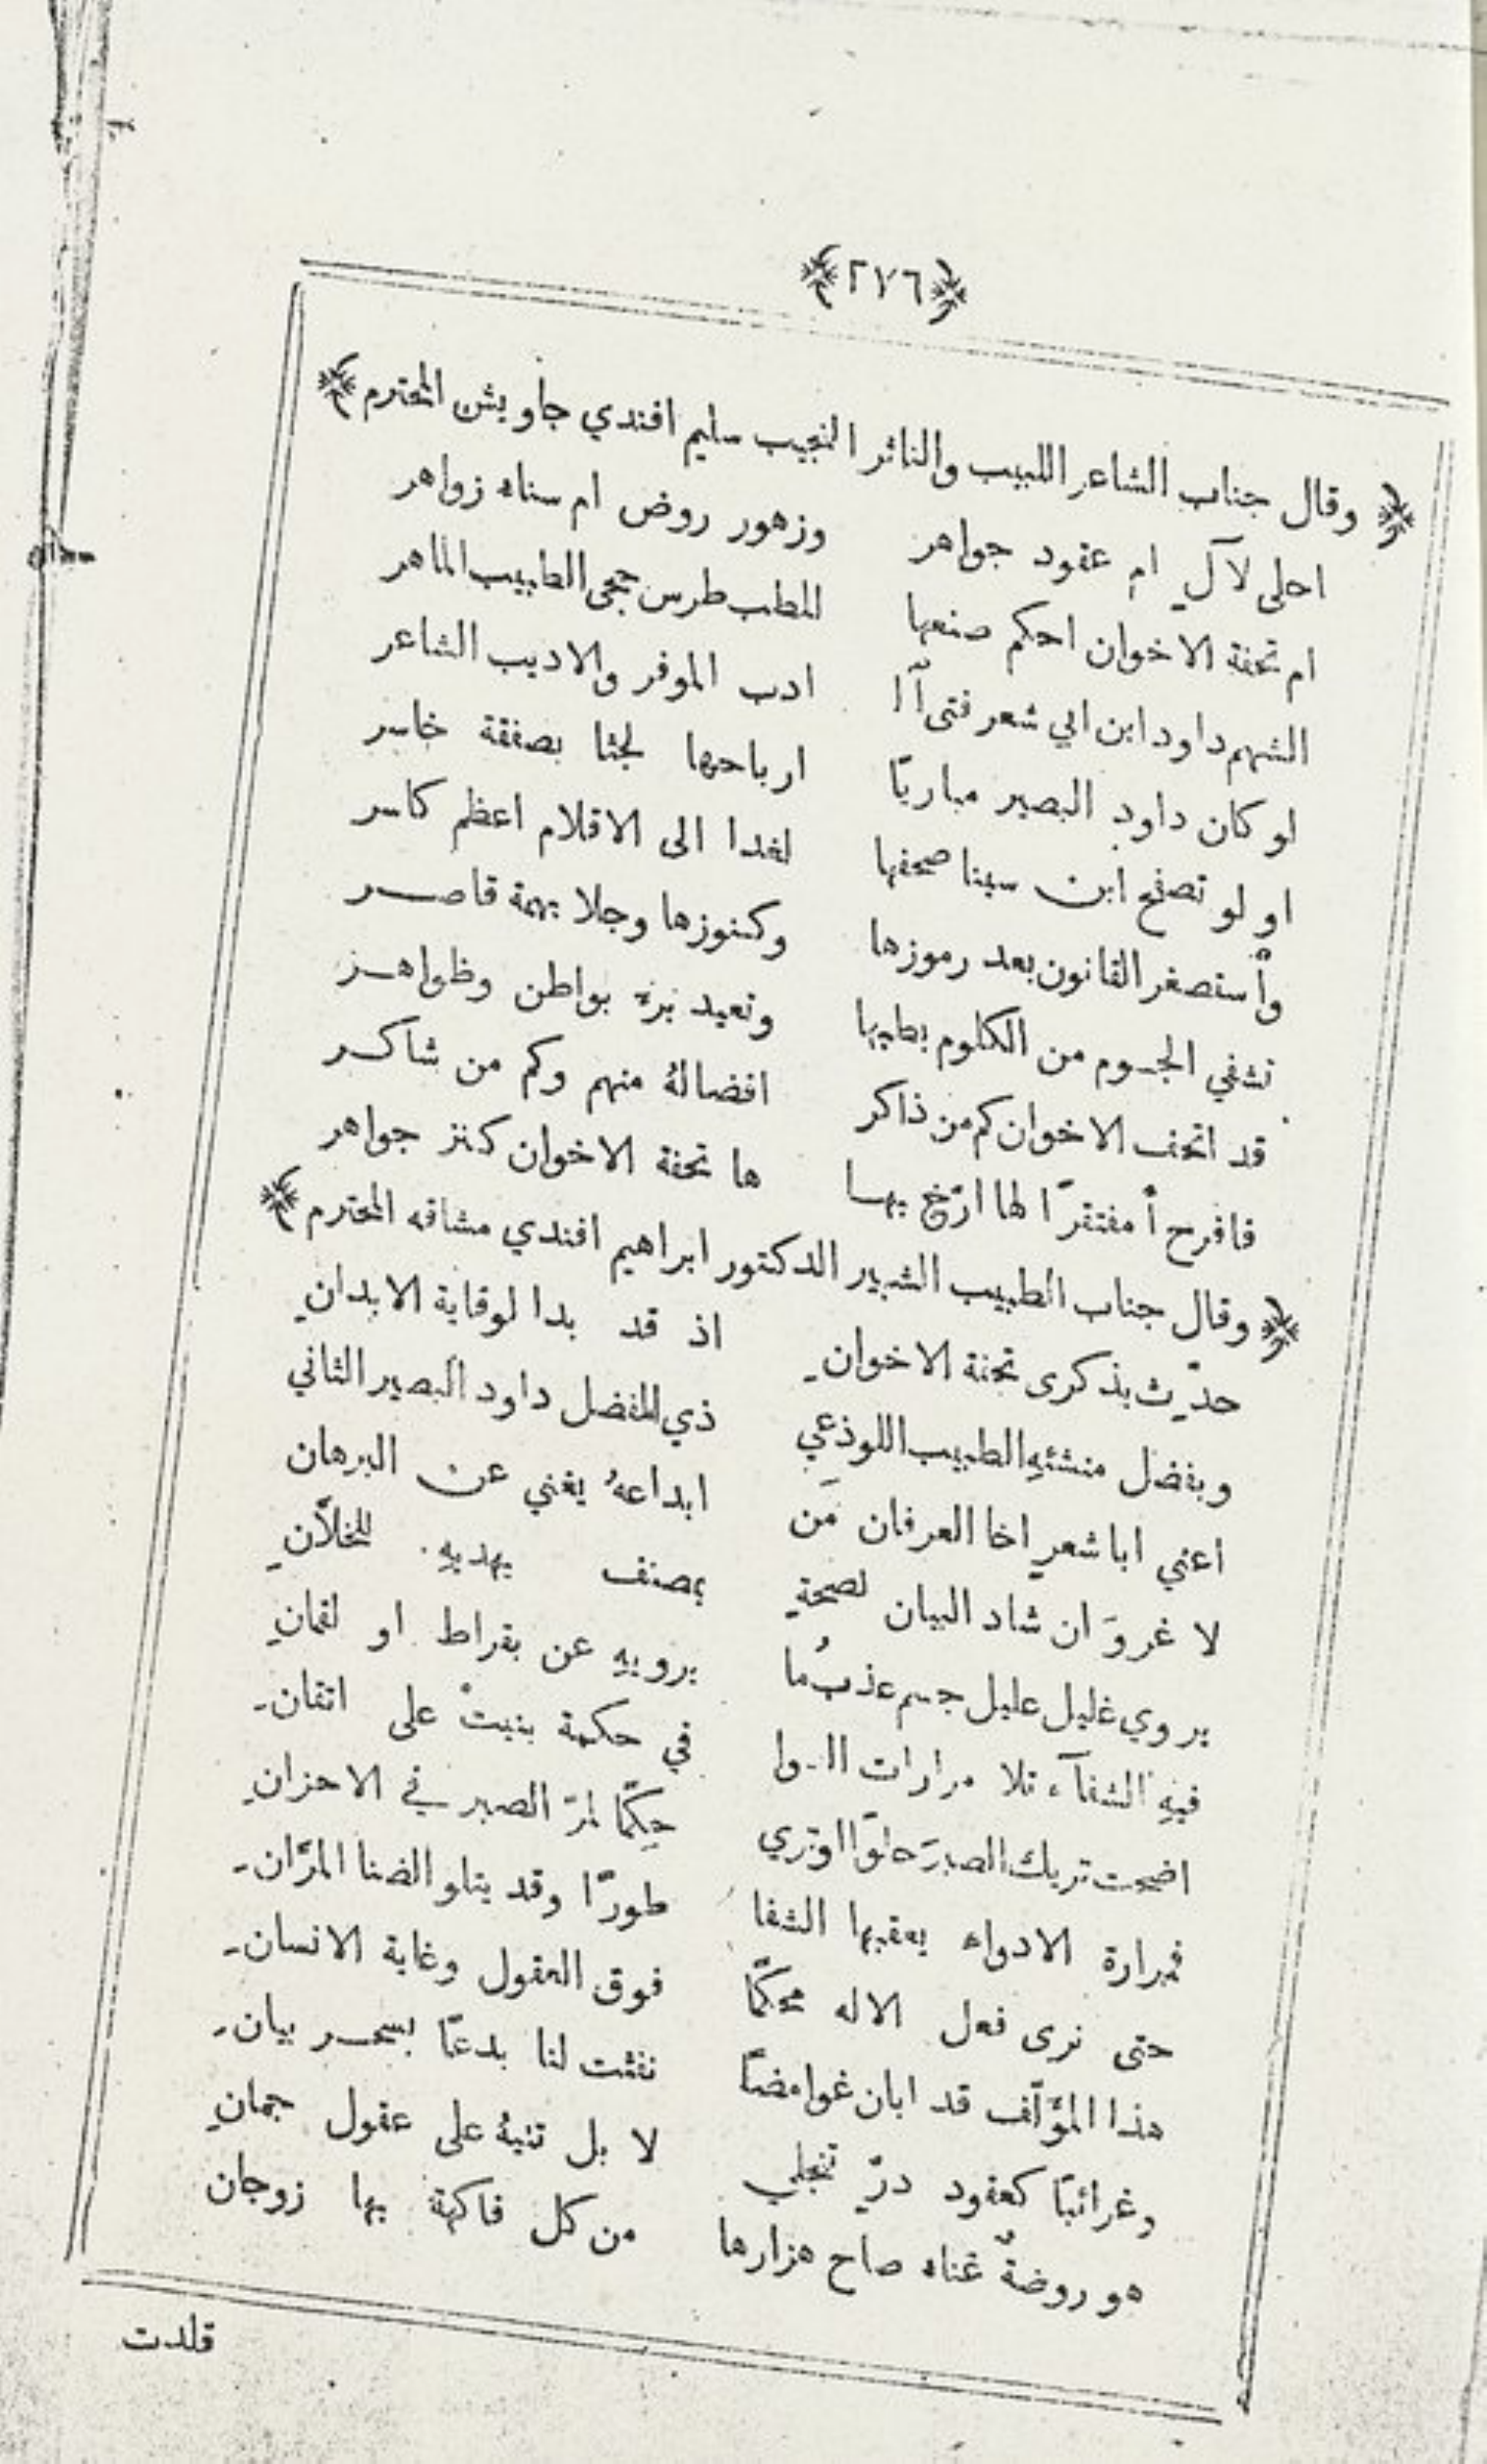 ﴿٢٧٦﴾
﴿ وقال جناب الشاعر اللبيب والناثر النجيب سليم افندي جاويش المحترم ﴾
احلى لآلٍ ام عقود جواهر وزهور روض ام سناه زواهر
ام تحفة الاخوان احكم صنعها للطب طرس حجى الطبيب الماهر
الشهم داود ابن ابي شعر فتى آلا ادب الموفر والاديب الشاعر
لو كان داود البصير مباريًا ارباحها لجثا بصفقة خاسر
او لو تصفح ابن سينا صحفها لغدا الى الاقلام اعظم كاسر
وأستصغر القانون بعد رموزها وكنوزها وجلا بهمة قاصر
تشفي الجسوم من الكلوم بطبها وتعيد بزه بواطن وظواهر
قد اتحف الاخوان كم من ذاكر افضالهُ منهم وكم من شاكر
فافرح أ مفتقرًا لها ارّخ بها ها تحفة الاخوان كنز جواهر
﴿ وقال جناب الطبيب الشهير الدكتور ابراهيم افندي مشاقه المحترم ﴾
حدّث بذكرى تحفة الاخوانِ اذ قد بدا لوقاية الابدانِ
وبفضل منشئهِ الطبيب اللوذعي ذي الفضل داود البصير الثاني
اعني ابا شعرٍ اخا العرفان مَن ابداعهُ يغني عن البرهان
لا غروَ ان شاد البيان لصحةٍ بمصنف يهديهِ للخلّانِ
يروي غليل عليل جسم عذبُ ما يرويهِ عن بقراط او لقمانِ
فيهِ الشفآء تلا مرارات الدوا في حكمة بنيتْ على اتقانِ
اضحت تريك الصبرَ حلوًا اوتري حِكَمًا لمرّ الصبر في الاحزانِ
فمرارة الادواء يعقبها الشفا طورًا وقد يتلو الضنا المرّانِ
حتى نرى فعل الاله محكمًا فوق العقول وغاية الانسانِ
هذا المؤلّف قد ابان غوامضًا نفثت لنا بدعًا بسحر بيانِ
وغرائبًا كعقود درٍّ تنجلي لا بل تتيهُ على عقول جمانِ
هو روضةٌ غناه صاح هزارها من كل فاكهة بها زوجان
قلدت